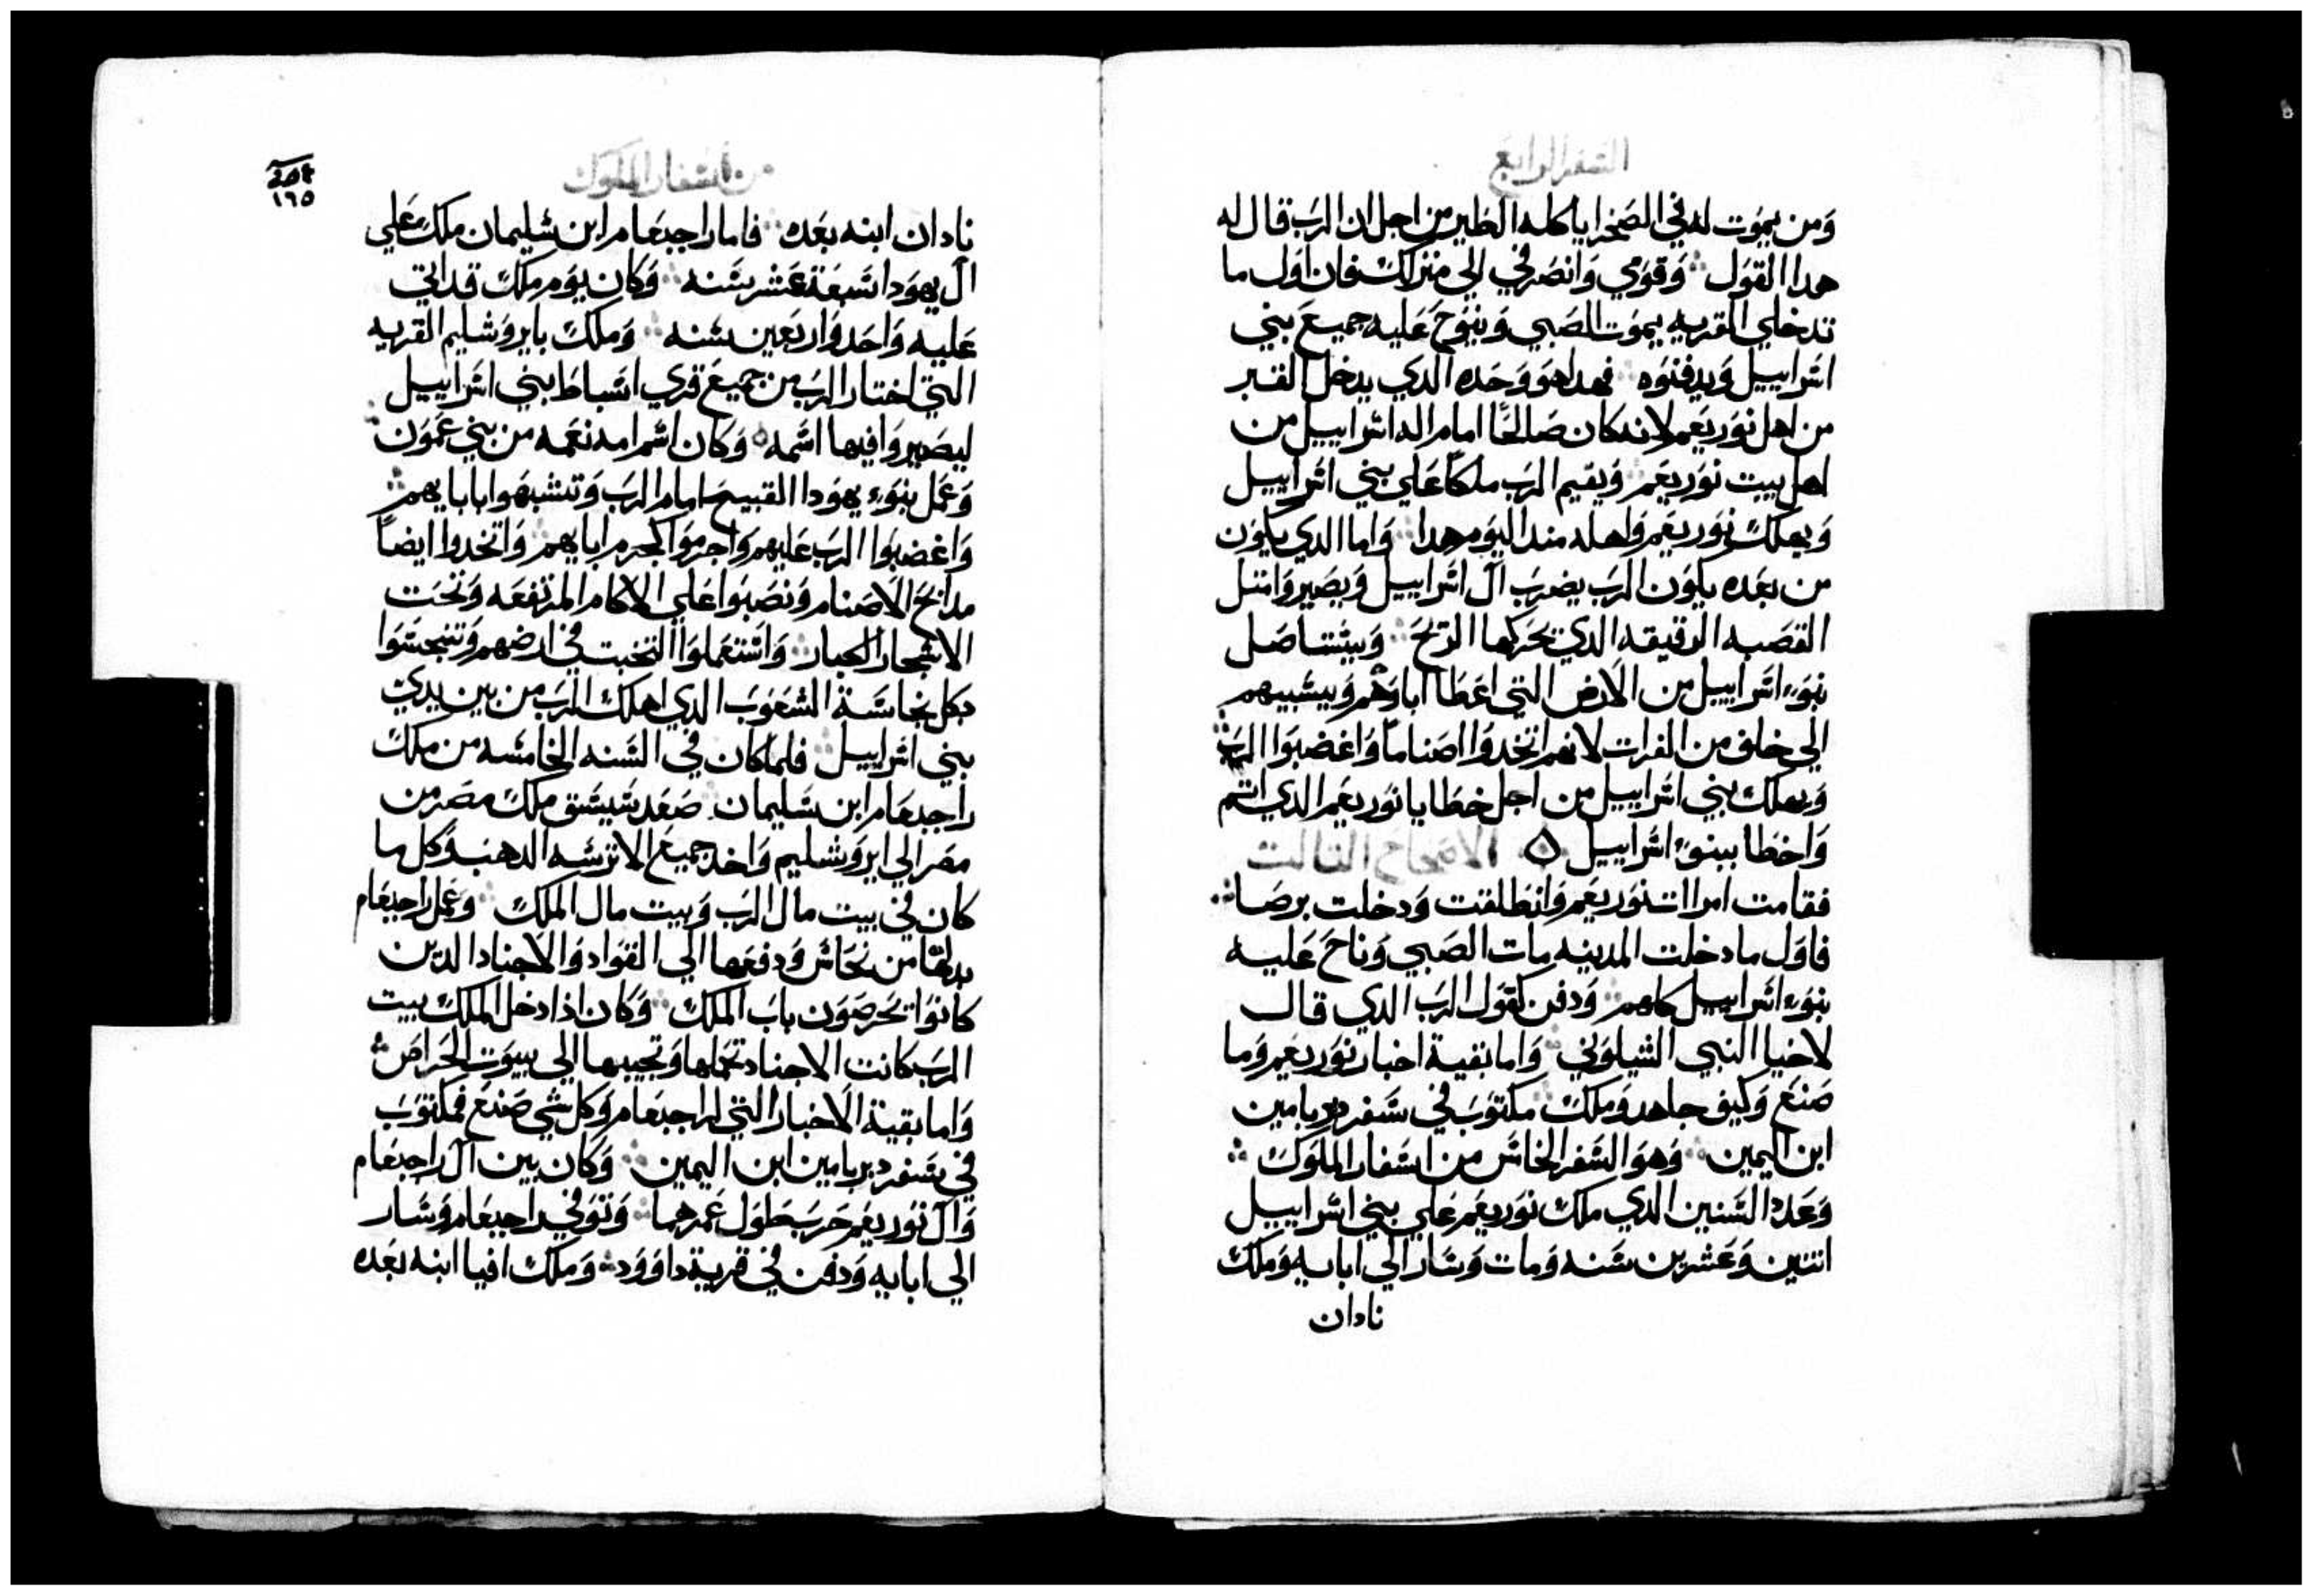 السفر الرابع
وَمن يموَت له في الصَحرا ياكله الطير من اجل ان الرَب قال له
هدا القوَل وَقوَمي وَانصَرفي الي منزلك فان اوَل ما
تدخلي القريه يموَت الصَبي وَينوَح عَليه جميعَ بني
اسَراييل وَيدفنوَه فهدا هوَ وَحَده الدي يدخل القبر
من اهل نوَريعَم لانه كان صَالحًا امام اله اسَراييل من
اهل بيت نوَريعَم وَيقيم الرَب ملكًا عَلي بني اسَراييل
وَيهلك نوَريعَم وَاهله مند اليوَم هدا وَاما الدي يكوَن
من بعَده يكوَن الرَب يضرَب آل اسَراييل وَيصَيروَا متل
القصَبه الرقيقه الدي تحَركها الرَيحَ وَييسَتاصَل
بنوَء اسَراييل من الاَرض التي اعَطا اباوَهم وَييسَبيهم
الي خلف من الفرات لانهم اتخدوَا اصَناماً وَاغضبوَا الرَب
وَيهلك بني اسَراييل من اجل خطايا نوَريعَم الدي اتم
وَاخطا ببنوَء اسَراييل ۞ الاصحاح التالت
فقامت امراات نوَريعَم وَانطلقت وَدخلت برصَا
فاوَل ما دخلت المدينه مات الصَبي وَناحَ عَليه
بنوَء اسَراييل كلهم وَدفن كقوَل الرَب الدي قال
لاخيا النبي الشيلوَني وَاما بقية اخبار نوَريعَم وَما
صَنعَ وَكيف جاهد وَملك مكتوَبَ في سَفر دبريامين
ابن اليمين وَهوَ السَفر الخامَس من اسَفار الملوَك
وَعَدد السَنين الدي ملك نوَريعَم عَلي بني اسَراييل
اتنين وَعَشرين سَنه وَمات وَسَار الي ابايه وَملك
نادان
من اسَفار الملوَك
١٦٥
نادان ابنه بعَده فاما راجبعَام ابن سَليمان ملك عَلي
آل يهوَدا سَبعَة عَشر سَنه وَكان يوَم ملك قد اتي
عَليه وَاحَد وَاربعَين سَنه وَملك بايروَشليم القريه
التي اختار الرَب من جميعَ قري اسَباط بني اسَراييل
ليصَيروَا فيها اسَمه وَكان اسَم امه نعَمه من بني عَموَن
وَعَمل بنوَء يهوَدا القبيحَ امام الرَب وَتشبهوَا باباييهم
وَاغضبوَا الرَب عَليهم وَاجرموَا كجرم اباييهم وَاتخدوا ايضاً
مدابحَ الاَصَنام وَنصَبوَا عَلي الاكام المرتفعَه وَتحَت
الاشجار الكبار وَاسَتعَملوَا التخبت في ارضهم وَتنجسَوَا
بكل نجاسَة الشعَوَبَ الدي اهلك الرَب من بين يدي
بني اسَراييل فلما كان في السَنه الخامسَه من ملك
راجبعَام ابن سَليمان صَعَد شيشَق ملك مصَر من
مصَر الي ايروَشليم وَاخد جميعَ الاترسَه الدهب وَكل ما
كان في بيت مال الرَب وَبيت مال الملك وَعَمل راجبعَام
بدلها من نحَاسَ وَدفعَها الي القوَاد وَالاَجناد الدَين
كانوَا يحَرصَوَن بابَ الملك وَكان اذا دخل الملك بيت
الرَب كانت الاجناد تحَملها وَتجيبها الي بيوَت الحَراصَ
وَاما بقية الاَخبار التي لراجبعَام وَكل شي صَنعَ فمكتوَبَ
في سَفر دبريامين ابن اليمين وَكان بين آل راجبعَام
وَآل نوَريعَم حَربَ طوَل عَمرهما وَتوَفي راجبعَام وَسَار
الي ابايه وَدفن في قرية داوَوَد وَملك افيا ابنه بعَده